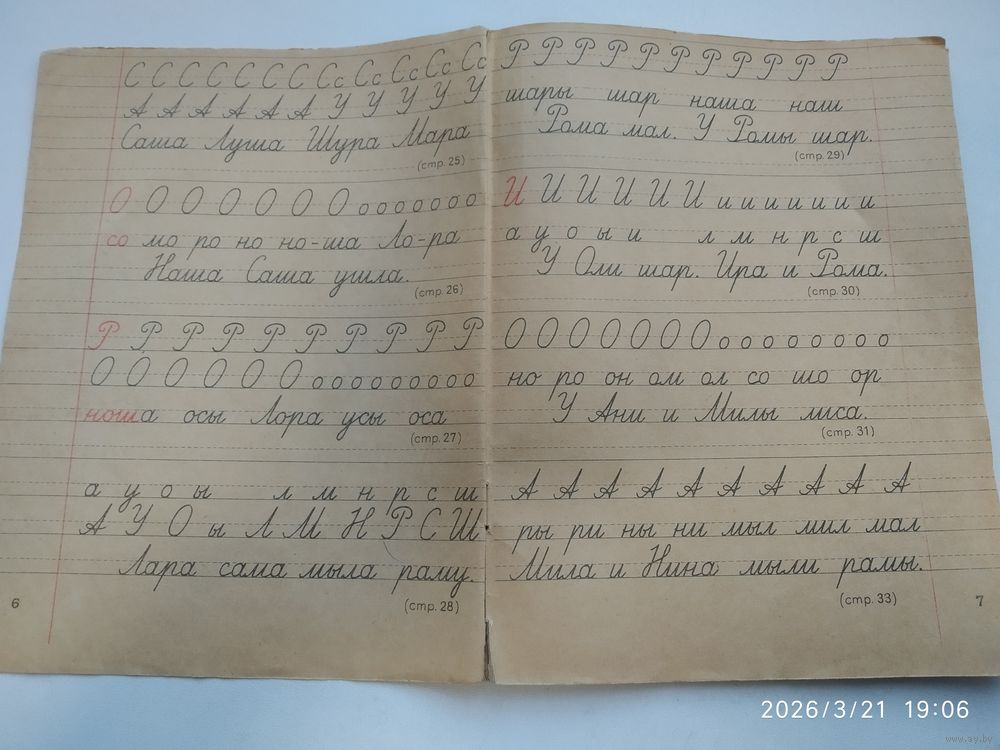 С С С С С С С Сс Сс Сс Сс Сс
А А А А А А У У У У У
Саша Луша Шура Мара
(стр. 25)
О О О О О О О о о о о о о о
со мо ро но но-ша Ло-ра
Наша Саша ушла.
(стр. 26)
Р Р Р Р Р Р Р Р Р Р
О О О О О О о о о о о о о о о
ноша осы Лора усы оса
(стр. 27)
а у о ы л м н р с ш
А У О ы Л М Н Р С Ш
Лара сама мыла раму.
(стр. 28)
6
Р Р Р Р Р Р Р Р Р Р Р
шары шар наша наш
Рома мал. У Ромы шар.
(стр. 29)
И И И И И И и и и и и и и
а у о ы и л м н р с ш
У Оли шар. Ира и Рома.
(стр. 30)
О О О О О О О о о о о о о о о
но ро он ом ол со шо ор
У Ани и Милы лиса.
(стр. 31)
А А А А А А А А А А
ры ри ны ни мыл мил мал
Мила и Нина мыли рамы.
(стр. 33)
7
2026/3/21 19:06
www.ay.by